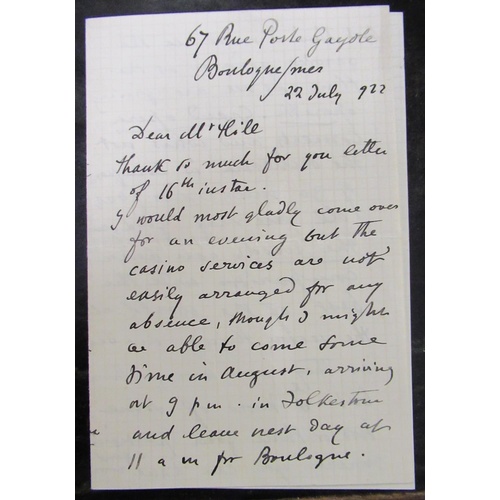 67 Rue Porte Gayole
Boulogne/mer
22 July 922
Dear Mr Hill
Thank so much for you letter
of 16th instan.
I would most gladly come over
for an evening but the
casino services are not
easily arranged for any
absence, though I might
be able to come some
time in August, arriving
at 9 pm. in Folkestone
and leave next day at
11 a m for Boulogne.